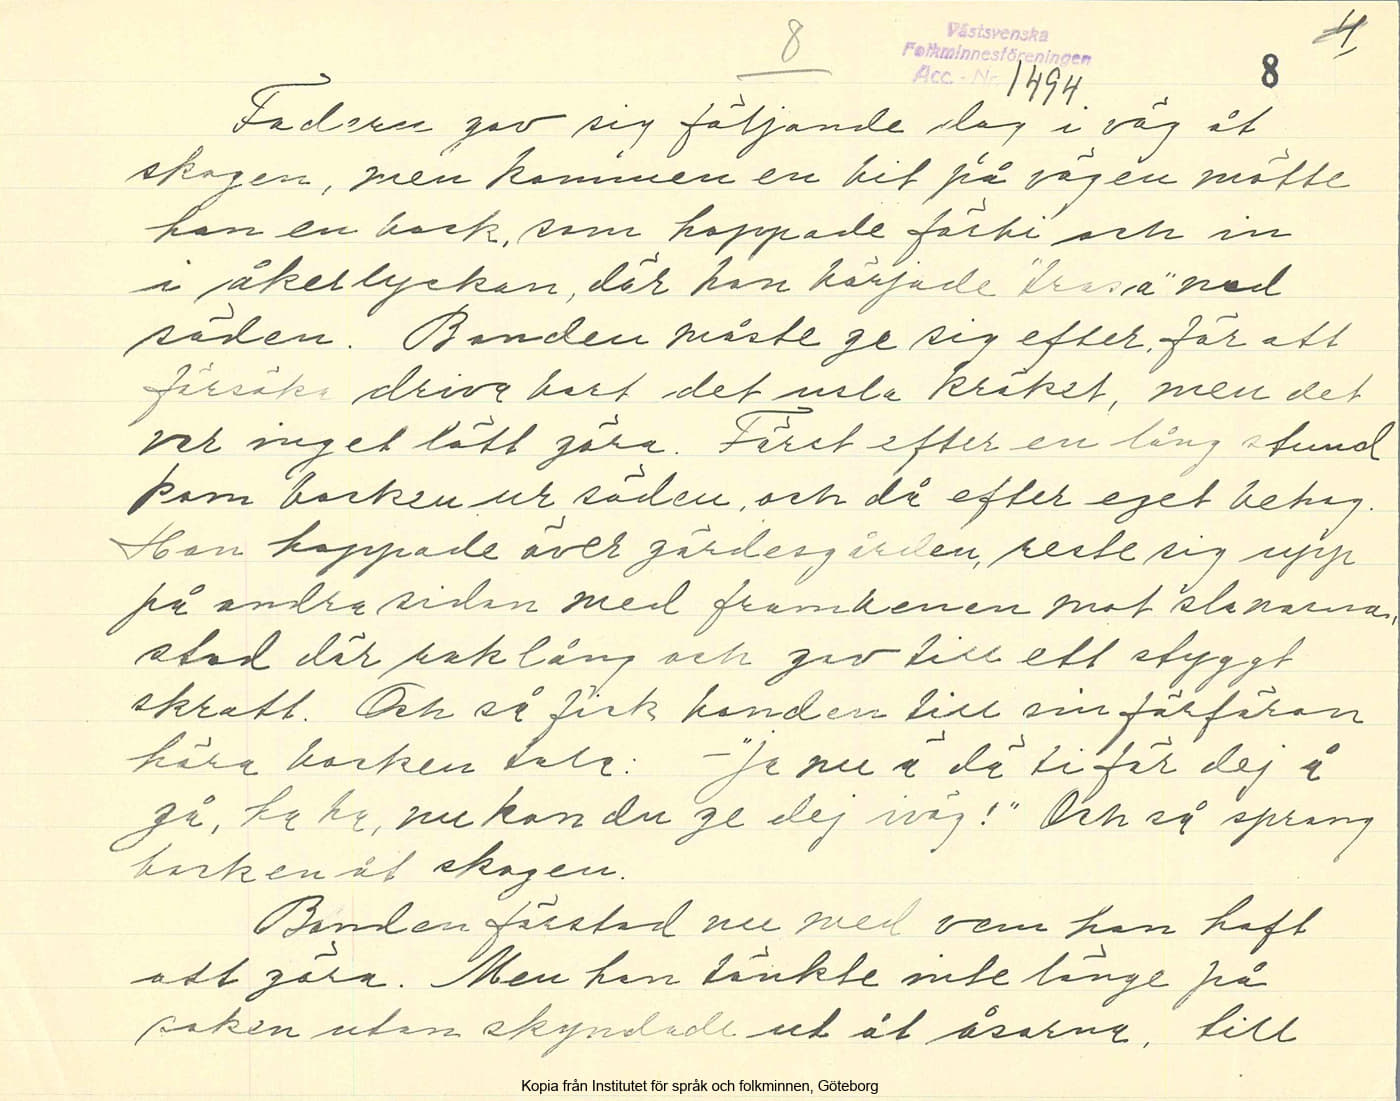 8
Västsvenska
Folkminnesföreningen
Acc. - Nr 1494
8
4
Fadern gav sig följande dag i väg åt
skogen, men kommen en bit på vägen mötte
han en bock, som hoppade förbi och in
i åkerlyckan, där han började "trasa" ned
säden. Bonden måste ge sig efter, för att
försöka driva bort det usla kräket, men det
var inget lätt göra. Först efter en lång stund
kom bocken ur säden, och då efter eget behag.
Han hoppade över gärdesgården, reste sig upp
på andra sidan med frambenen mot slanorna,
stod där raklång och gav till ett styggt
skratt. Och så fick bonden till sin förfäran
höra bocken tala: - "Ja nu ä dä ti för dej å
gå, ha ha, nu kan du ge dej iväg!" Och så sprang
bocken åt skogen.
Bonden förstod nu med vem han haft
att göra. Men han tänkte inte länge på
saken utan skyndade ut åt åsarna, till
Kopia från Institutet för språk och folkminnen, Göteborg